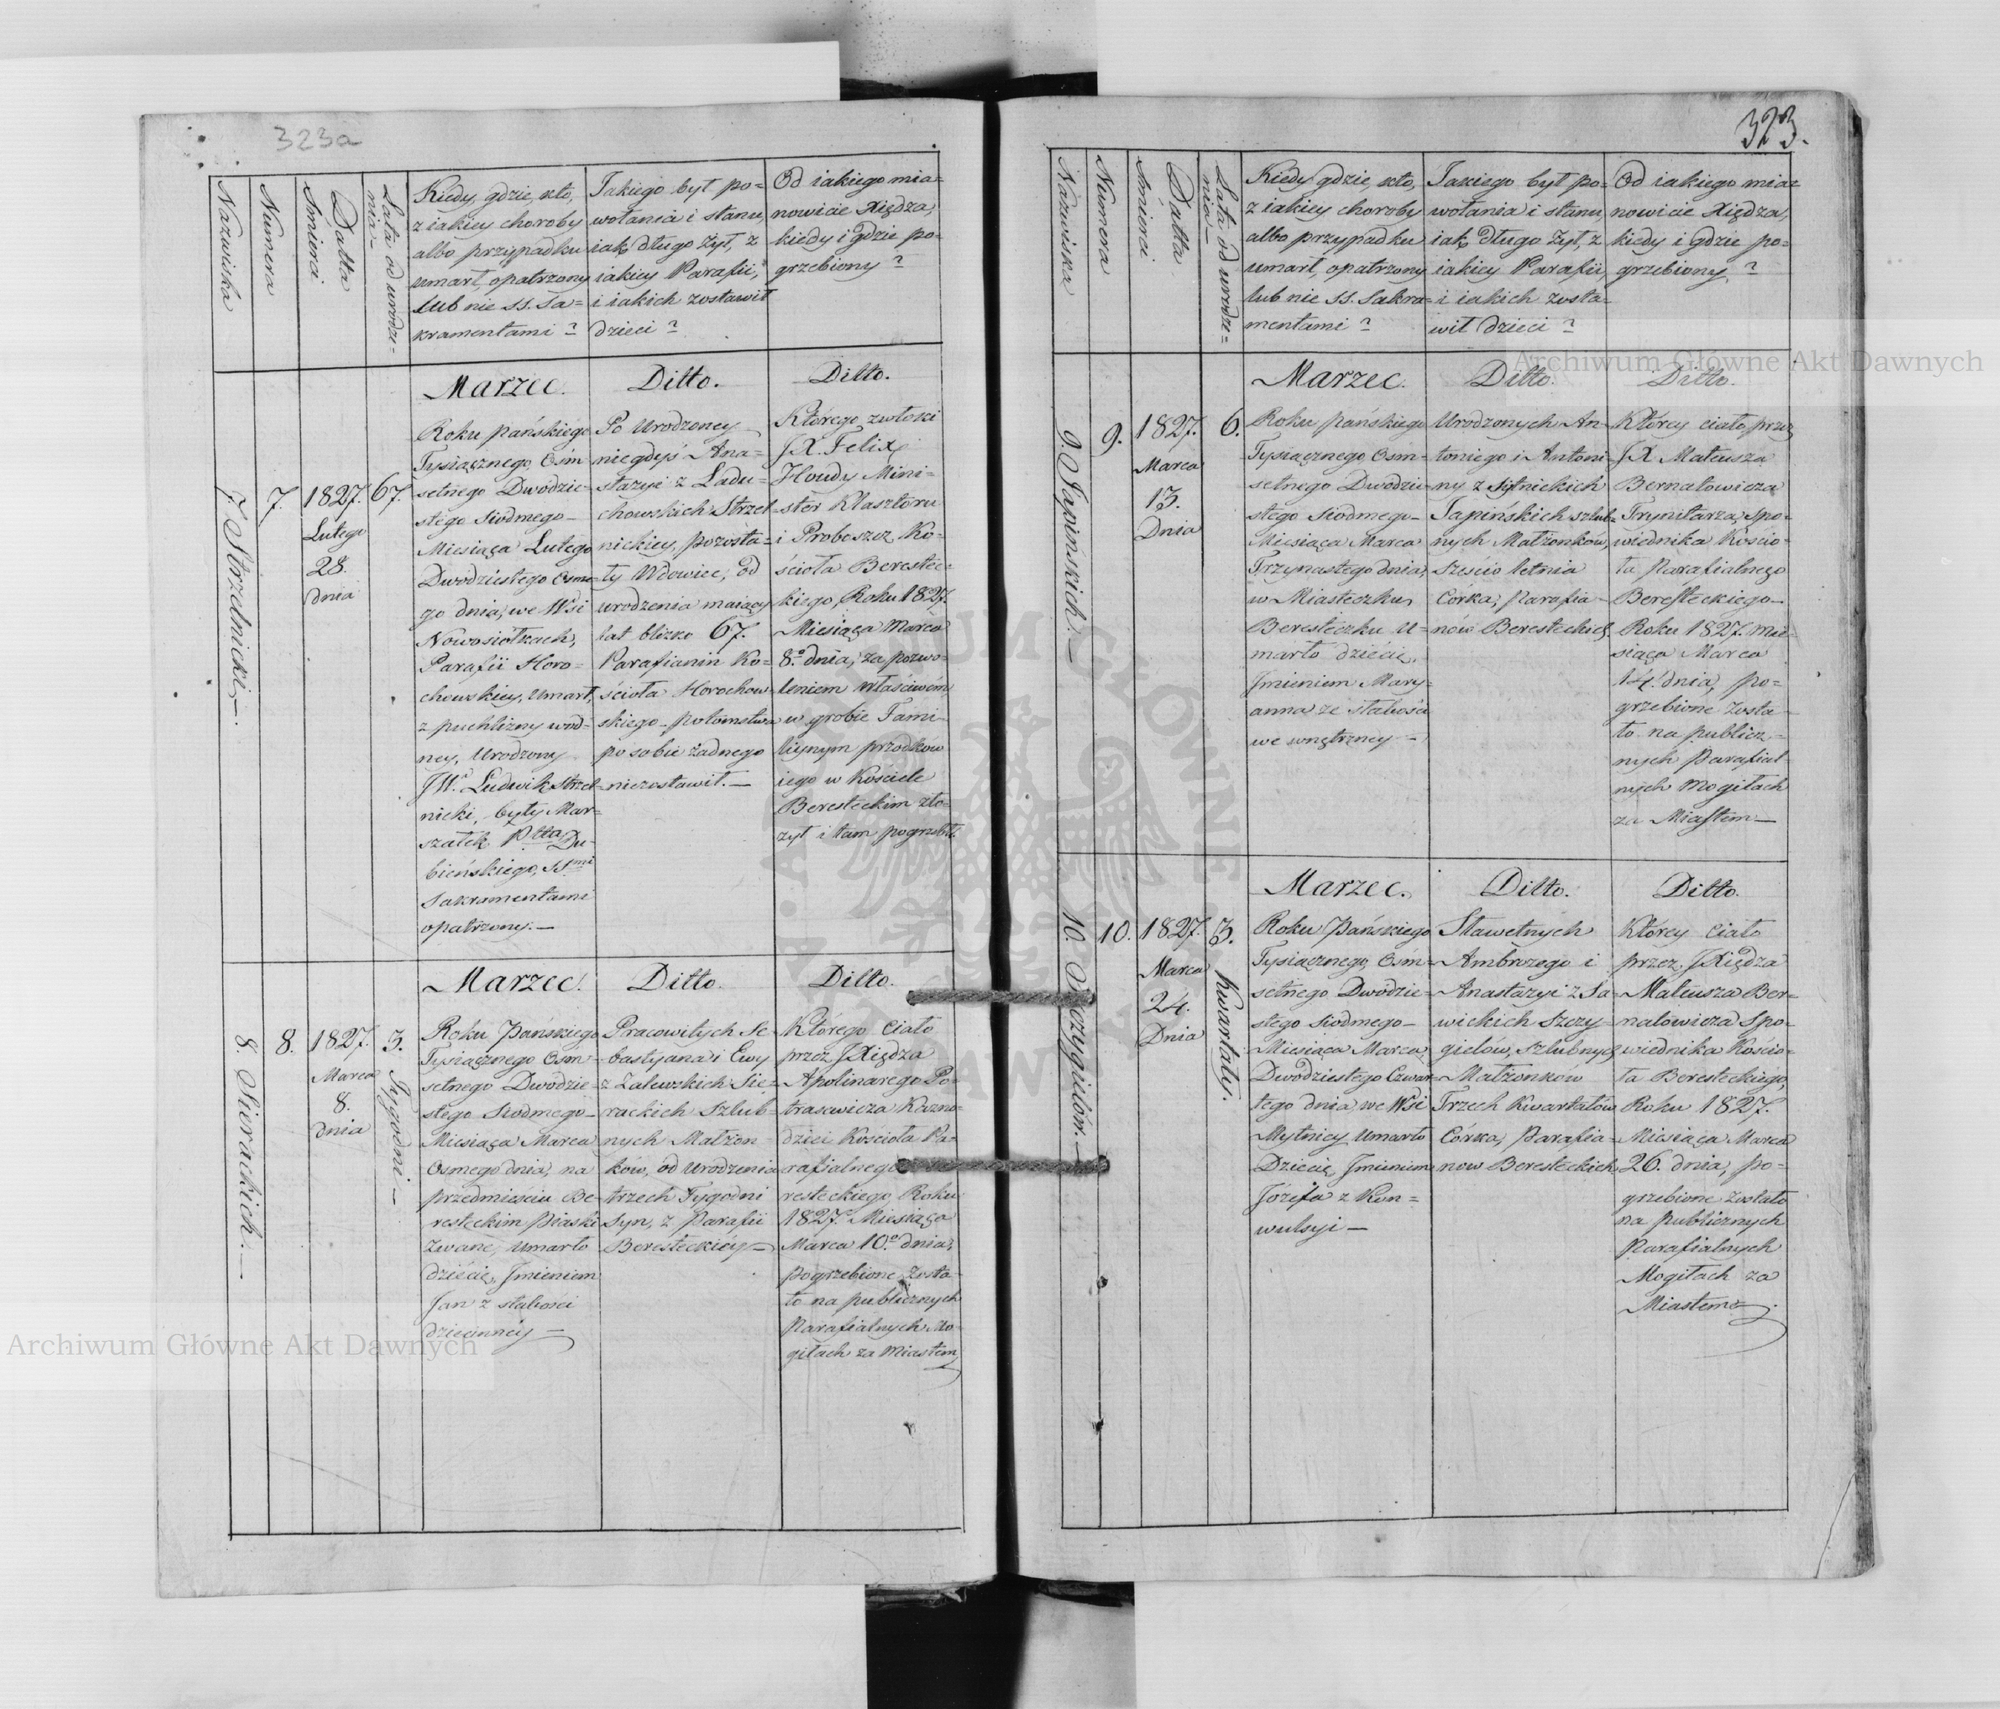 323a
Nazwiska
Numera
Datta
Smierci
Lata od urodze=
nia.
Kiedy, gdzie, kto,
z iakiey choroby
albo przypadku
umarł, opatrzony
lub nie SS. Sa=
kramentami?
Jakiego był po=
wołania i stanu,
iak długo żył, z
iakiey Parafii,
i iakich zostawił
dzieci?
Od iakiego mia=
nowicie Xiędza,
kiedy i gdzie po=
grzebiony?
7. Strzelnicki.
7.
1827.
Lutego
28.
dnia
67.
Marzec.
Roku pańskiego
Tysiącznego Ośm
setnego Dwódzie=
stego siódmego
Miesiąca Lutego
Dwódziestego Osme=
go dnia, we Wsi
Nowosiołkach,
Parafii Horo=
chowskiey, Umarł,
z puchliny wod=
ney, Urodzony
JW. Ludwik Strzel=
nicki, były Mar=
szałek Pttu Du=
bieńskiego, SSmi
Sakramentami
opatrzony.
Ditto.
Po Urodzoney
niegdyś Ana=
stazyi z Ladu=
chowskich Strzel=
nickiey, pozosta=
ły Wdowiec, od
urodzenia maiący
lat blizko 67.
Parafianin Ko=
ścioła Horochow=
skiego potomstwa
po sobie żadnego
niezostawił.
Ditto.
Którego zwłoki
J.X. Felix
Houdy Mini=
ster Klasztoru
i Proboszcz Ko=
ścioła Berestec=
kiego, Roku 1827.
Miesiąca Marca
8.o dnia, za pozwo=
leniem właściwém
w grobie Fami=
liynym przodkow
iego w Kościele
Beresteckim zło=
żył i tam pogrzebł.
8. Sierackich.
8.
1827.
Marca
8.
dnia
3. Tygodni
Marzec.
Roku Pańskiego
Tysiącznego Osm=
setnego Dwódzie=
stego Siodmego
Miesiąca Marca
Osmego dnia, na
przedmieściu Be=
resteckim Piaski
zwane, umarło
dziecię, Imieniem
Jan z słabości
dziecinney
Ditto.
Pracowitych Se=
bastyana i Ewy
z Zalewskich Sie=
rackich Szlub=
nych Małżon=
ków, od Urodzenia
trzech Tygodni
Syn, z Parafii
Beresteckiéy
Ditto.
Którego Ciało
przez J Xiędza
Apolinarego Po=
trasewicza Kazno=
dziei Kościoła Pa=
rafialnego
resteckiego, Roku
1827. Miesiąca
Marca 10.o dnia,
pogrzebione zosta=
ło na publicznych
Parafialnych Mo=
giłach za Miastem
323.
Nazwiska
Numera
Datta
Smierci
Lata od urodze=
nia
Kiedy, gdzie, kto,
z iakiey choroby
albo przypadku
umarł, opatrzony
lub nie SS. Sakra=
mentami?
Jakiego był po=
wołania i stanu,
iak długo żył, z
iakiey Parafii,
i iakich zosta=
wił dzieci?
Od iakiego mia=
nowicie Xiędza,
kiedy i gdzie po=
grzebiony?
9. Japińskich.
9.
1827.
Marca
13.
Dnia
6.
Marzec.
Roku pańskiego
Tysiącznego Osm=
setnego Dwódzie=
stego siodmego
Miesiąca Marca
Trzynastego dnia,
w Miasteczku
Beresteczku U=
marło dziecię,
Imieniem Mary=
anna ze słabości
wewnętrzney
Ditto.
Urodzonych An=
toniego i Antoni=
ny z Sytnickich
Japińskich szlub=
nych Małżonków,
Sześcio letnia
Córka, Parafia=
nów Beresteckich
Ditto.
Którey ciało przez
J.X Mateusza
Bernatowicza
Trynitarza, Spo=
wiednika Koscio=
ła Parafialnego
Beresteckiego
Roku 1827. Mie=
siąca Marca
14. dnia, po=
grzebione zosta=
ło na publicz=
nych Parafial=
nych Mogiłach
za Miastem
10. Szczygielów.
10.
1827.
Marca
24.
Dnia
3. Kwartały.
Marzec.
Roku Pańskiego
Tysiącznego Osm=
setnego Dwódzie=
stego Siodmego
Miesiąca Marca
Dwódziestego Czwar=
tego dnia we Wsi
Mytnicy umarło
Dziecię, Imieniem
Józefa z Kon=
wulsyi
Ditto.
Sławetnych
Ambrozego i
Anastazyi z Sa=
wickich Szczy=
gielów, Szlubnych
Małżonków
Trzech Kwartałów
Córka, Parafia=
now Beresteckich
Ditto.
Którey Ciało
przez J Xiędza
Mateusza Ber=
natowicza Spo=
wiednika Kościo=
ła Beresteckiego,
Roku 1827.
Miesiąca Marca
26. dnia, po=
grzebione zostało
na publicznych
Parafialnych
Mogiłach za
Miastem
Archiwum Główne Akt Dawnych
Archiwum Główne Akt Dawnych